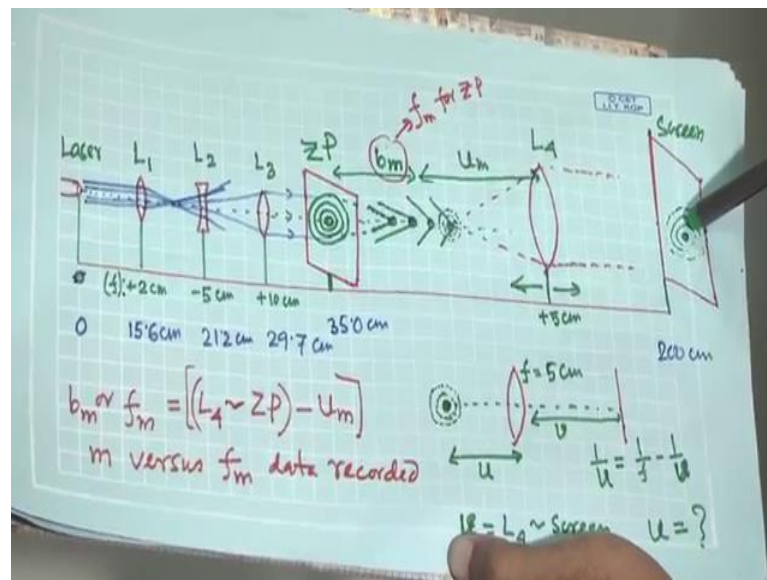 f_m for ZP
Laser L₁ L₂ L₃ ZP b_m u_m L₄ Screen
(f): +2cm -5cm +10cm +5cm
0 15.6cm 21.2cm 29.7cm 35.0cm 200cm
b_m or f_m = [(L₄ ~ ZP) - u_m]
m versus f_m data recorded
f = 5cm
u v
1/u = 1/f - 1/v
v = L₄ ~ Screen u = ?